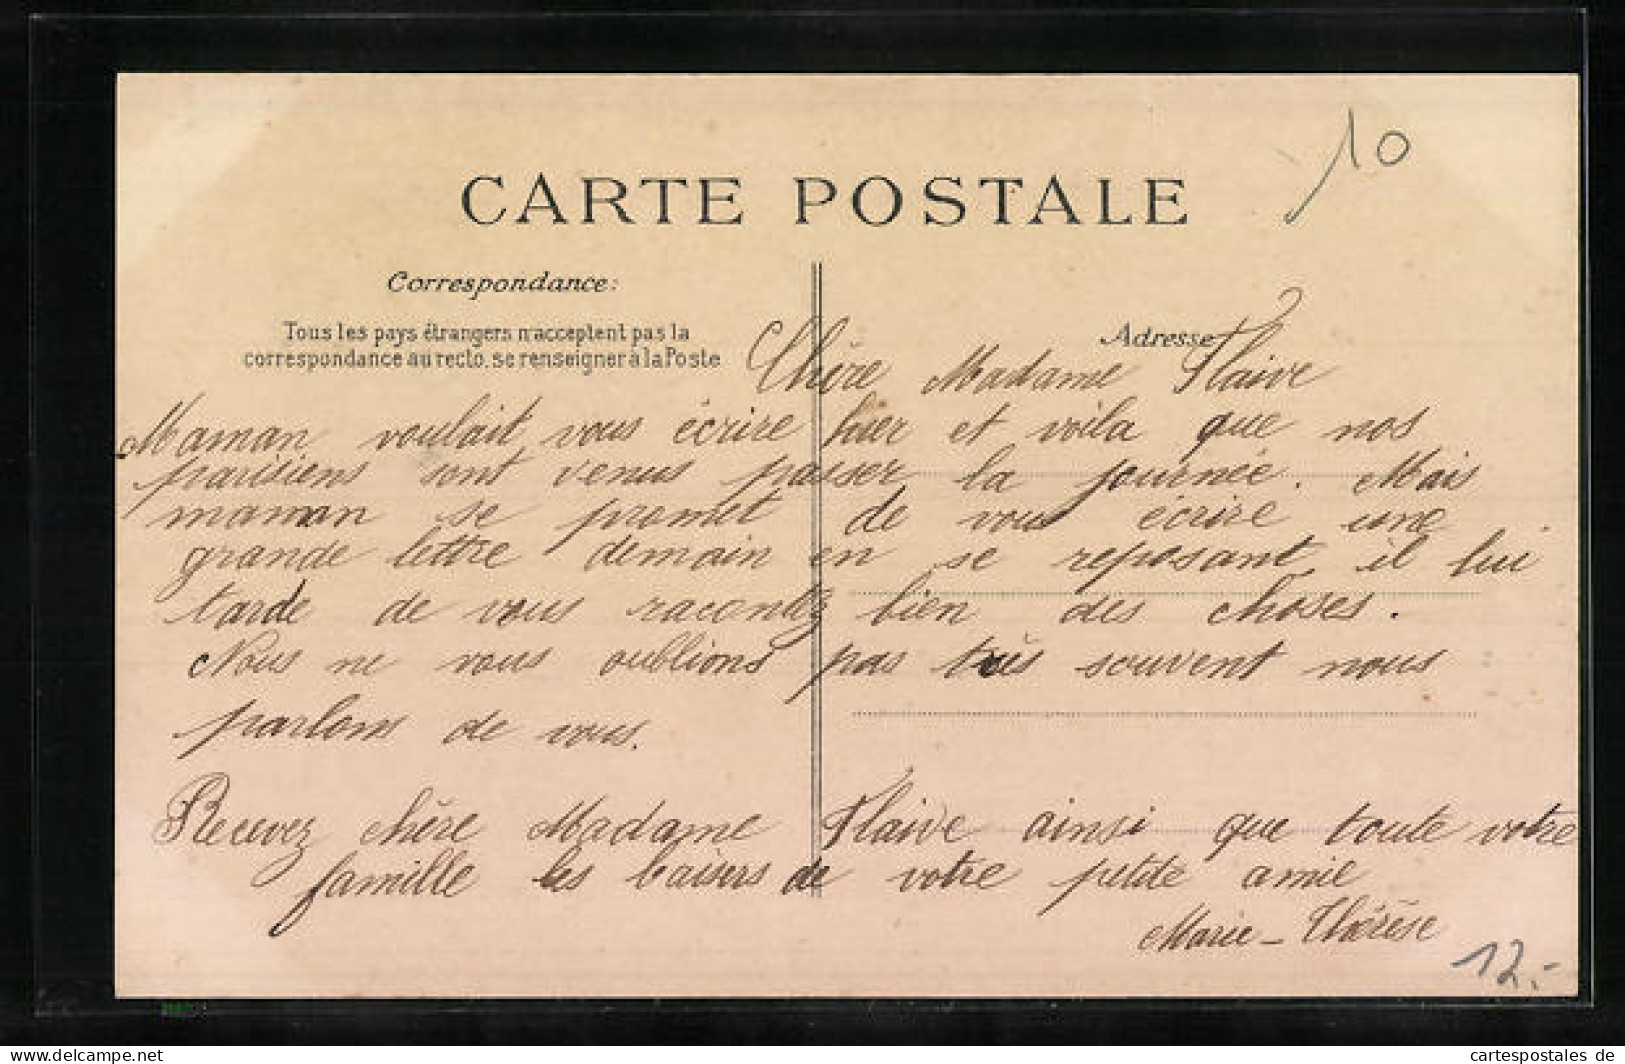 10
CARTE POSTALE
Correspondance:
Tous les pays étrangers n'acceptent pas la
correspondance au recto, se renseigner à la Poste
Adresse
Chère Madame Flaive
Maman voulait vous écrire hier et voila que nos
parisiens sont venus passer la journée. Mais
maman se promet de vous écrire une
grande lettre demain en se reposant, il lui
tarde de vous racontez bien des choses.
Nous ne vous oublions pas très souvent nous
parlons de vous.
Recevez chère Madame Flaive ainsi que toute votre
famille les baisers de votre petite amie
Marie-Thérèse
12.-
www.cartespostales.de
cartespostales de